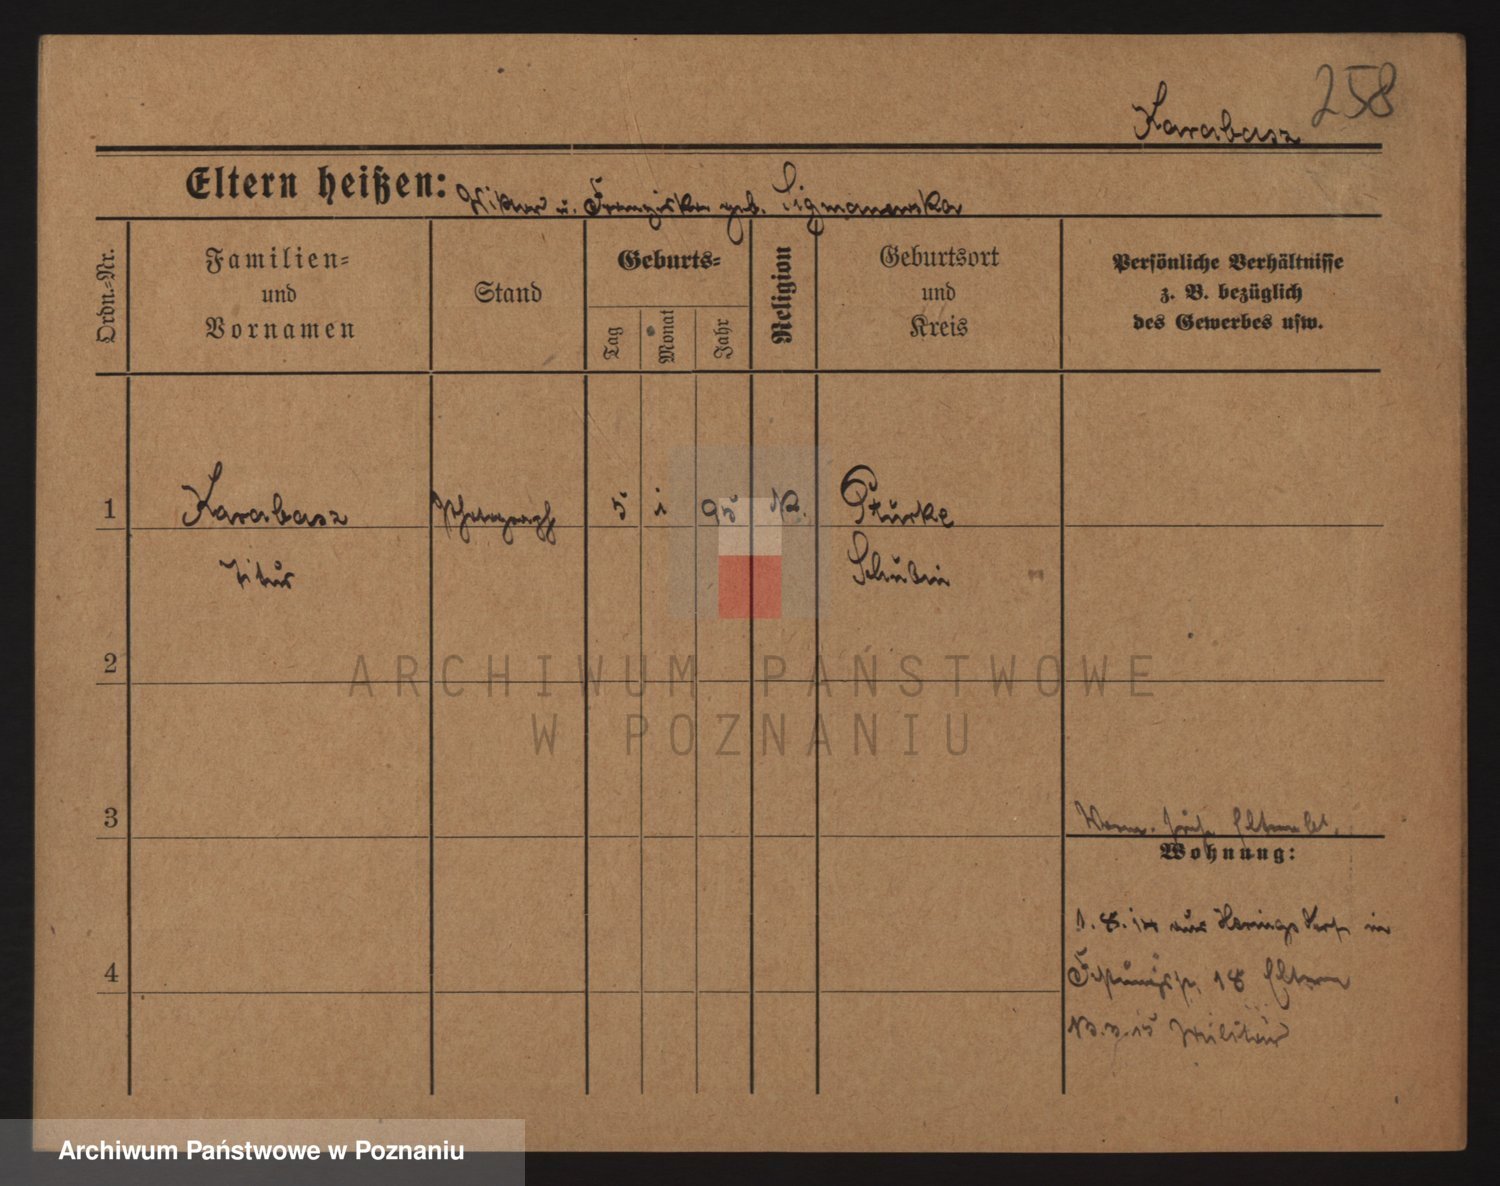 258
Karabasz
Eltern heißen: Viktor u. Franziska geb. Sigmanowska
Ordn.-Nr.
Familien-
und
Vornamen
Stand
Geburts-
Tag
Monat
Jahr
Religion
Geburtsort
und
Kreis
Persönliche Verhältnisse
z. B. bezüglich
des Gewerbes usw.
1 Karabasz Photograph 5 1 95 K.
Titus Schubin
2
ARCHIWUM PAŃSTWOWE
W POZNANIU
3
Wohnung:
1.8.14 aus
4
18 Eltern
15 Militär
Archiwum Państwowe w Poznaniu